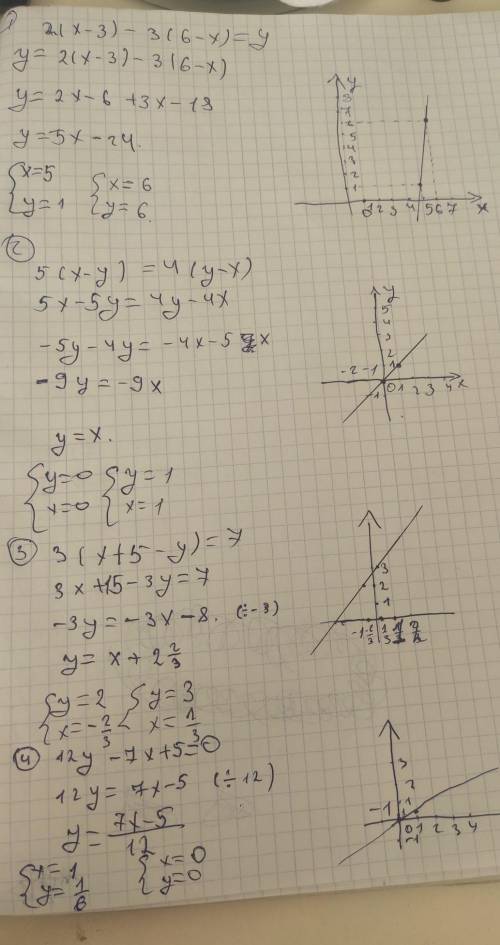 1
2(x-3) - 3(6-x) = y
y = 2(x-3) - 3(6-x)
y = 2x - 6 + 3x - 18
y = 5x - 24.
{x=5 {x=6
{y=1 {y=6.
y
x
1 2 3 4 5 6 7
2
5(x-y) = 4(y-x)
5x - 5y = 4y - 4x
-5y - 4y = -4x - 5x
-9y = -9x
y = x.
{y=0 {y=1
{x=0 {x=1
y
5
4
3
2
1
-2 -1 0 1 2 3 4 x
-1
3
3(x+5-y) = 7
3x + 15 - 3y = 7
-3y = -3x - 8. (÷-3)
y = x + 2 2/3
{y=2 {y=3
{x=-2/3 {x=1/3
3
2
1
4
12y - 7x + 5 = 0
12y = 7x - 5 (÷12)
y = 7x-5/12
{x=1 {x=0
{y=1/6 {y=0
3
2
1
-1 0 1 2 3 4
-1